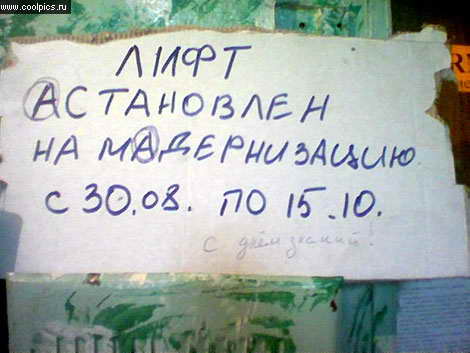 www.coolpics.ru
ЛИФТ
АСТАНОВЛЕН
НА МАДЕРНИЗАЦИЮ
С 30.08. ПО 15.10.
с днём знаний!